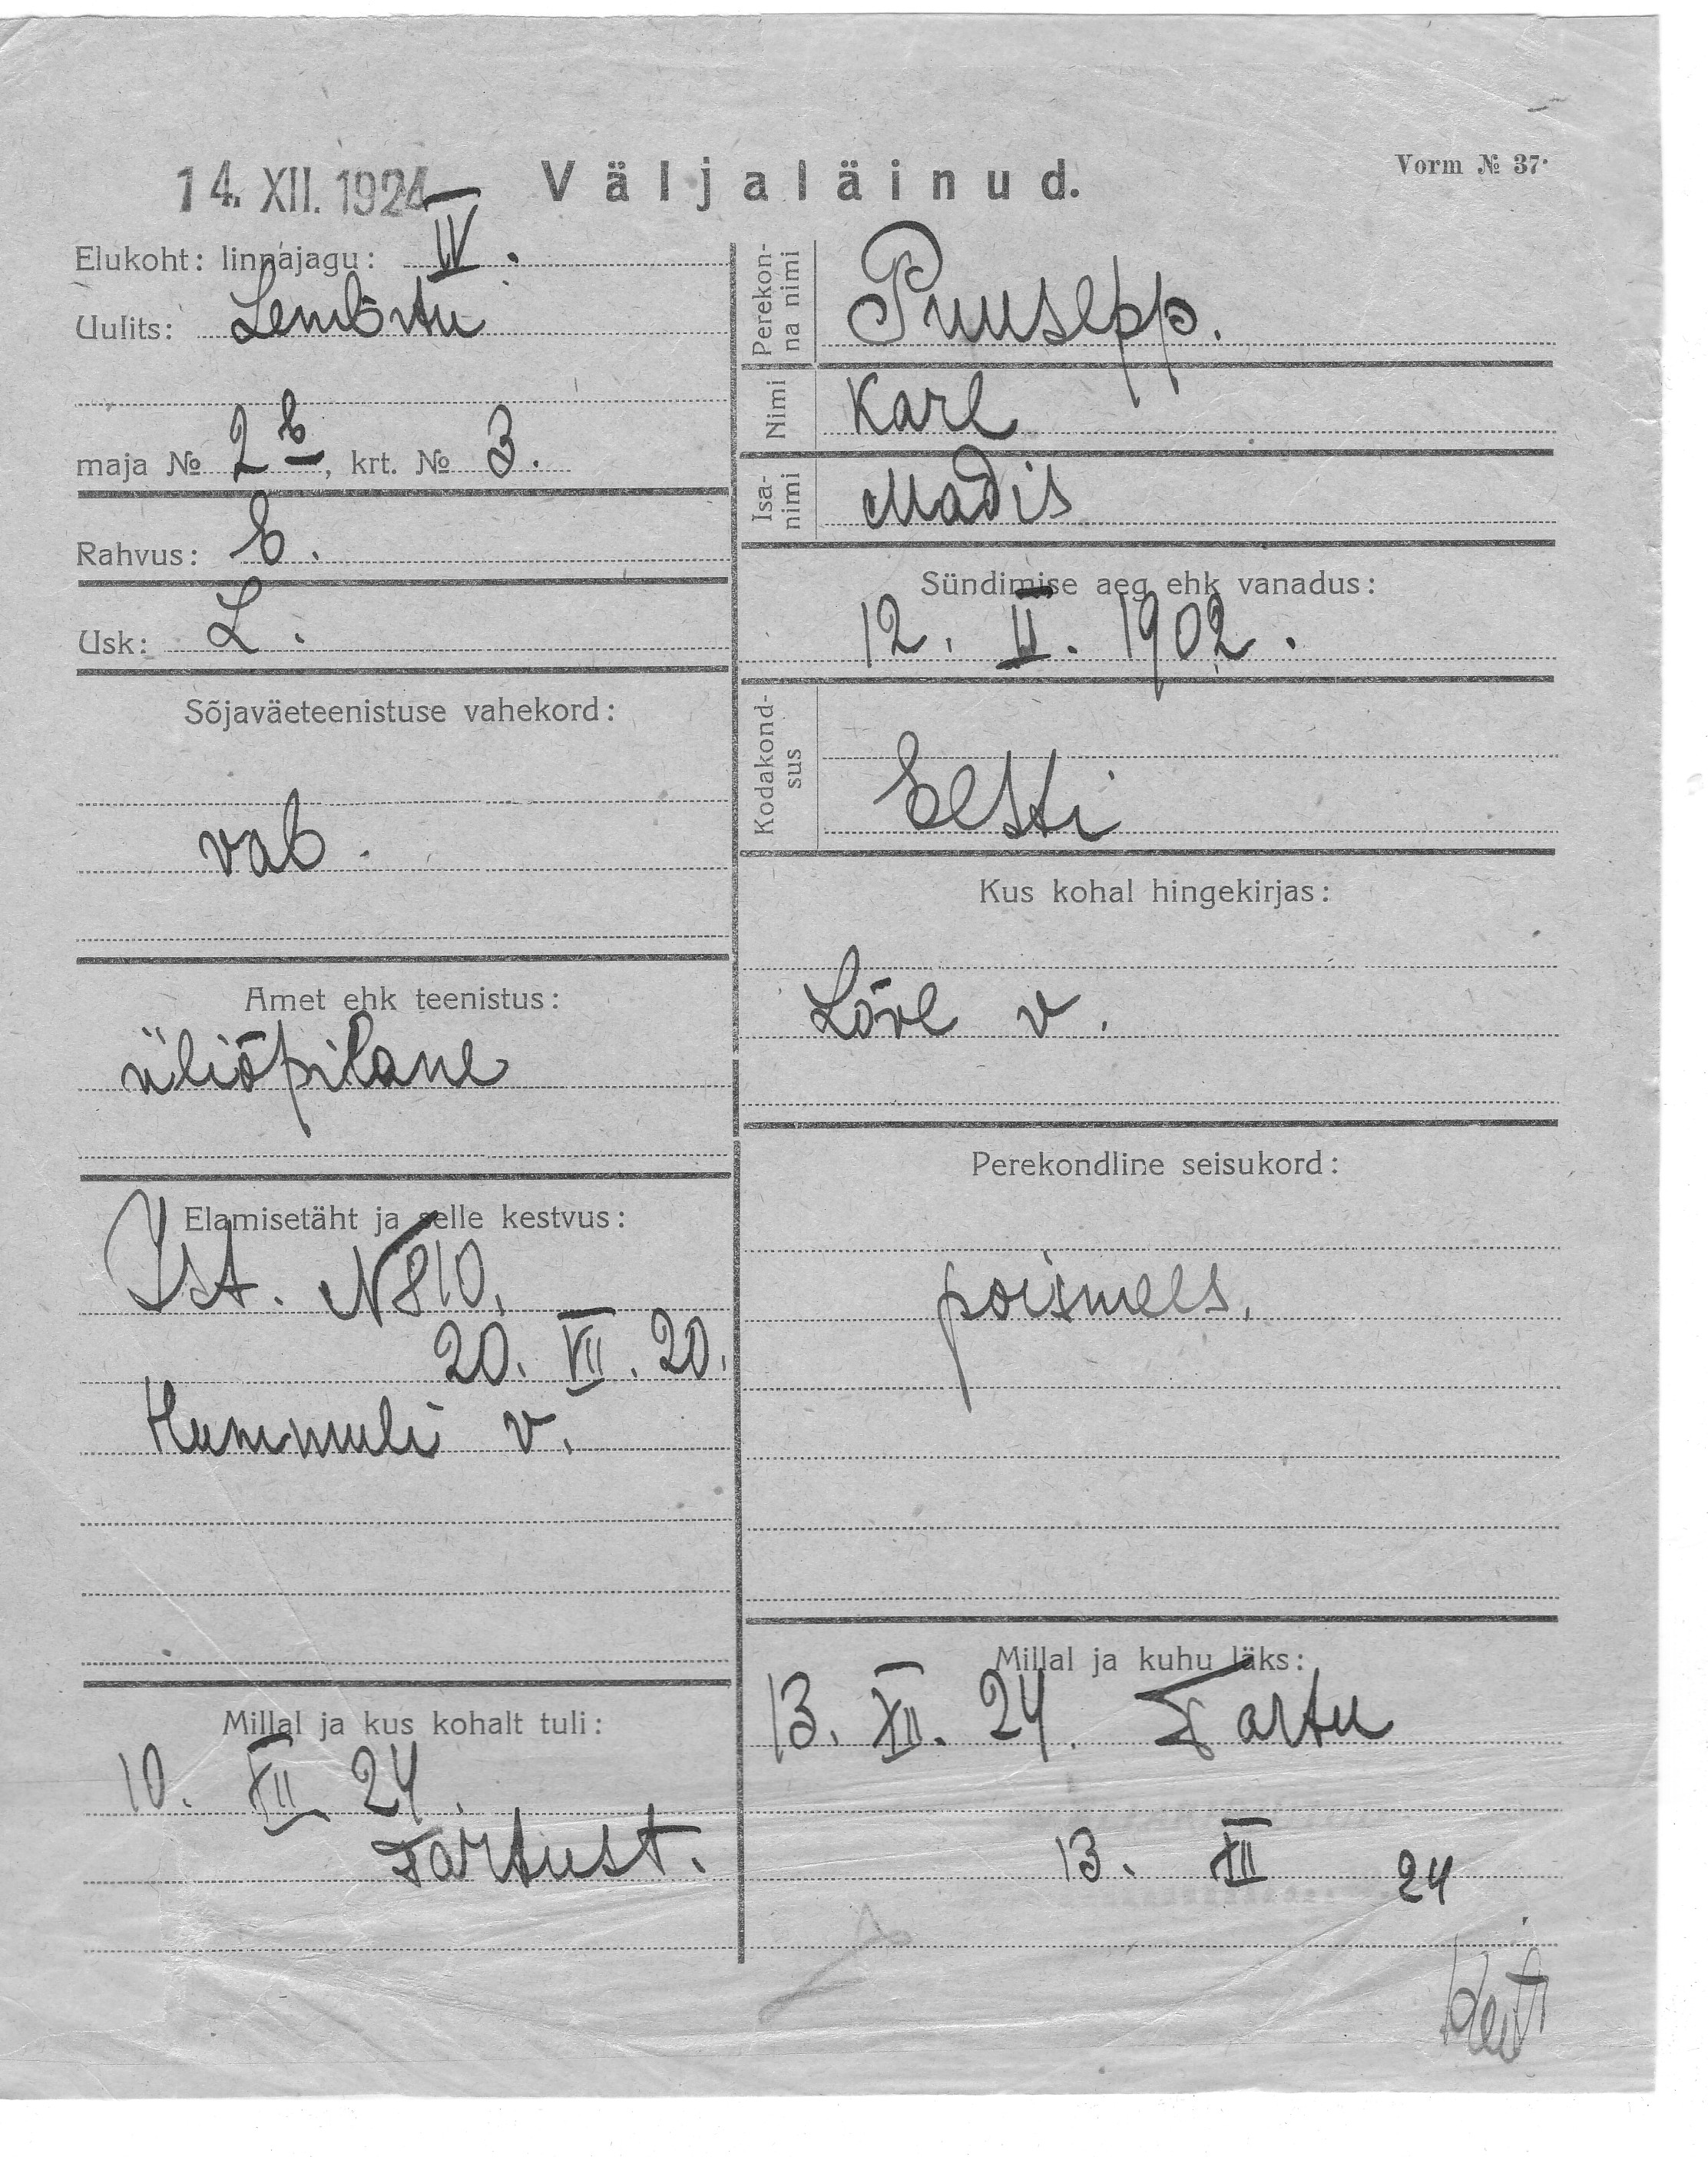 14. XII. 1924
Väljaläinud.
Vorm № 37.
Elukoht: linnajagu: IV.
Uulits: Lembitu
maja № 2 b, krt. № 3.
Rahvus: E.
Usk: L.
Sõjaväeteenistuse vahekord:
vab.
Amet ehk teenistus:
üliõpilane
Elamisetäht ja selle kestvus:
Ist. N 810.
20. VII. 20.
Hummuli v.
Millal ja kus kohalt tuli:
10. XII 24.
Tartust.
Perekonna nimi Puusepp.
Nimi Karl
Isanimi Madis
Sündimise aeg ehk vanadus:
12. II. 1902.
Kodakondsus Eesti
Kus kohal hingekirjas:
Lõve v.
Perekondline seisukord:
poismees.
Millal ja kuhu läks:
13. XII. 24. Tartu
13. XII 24